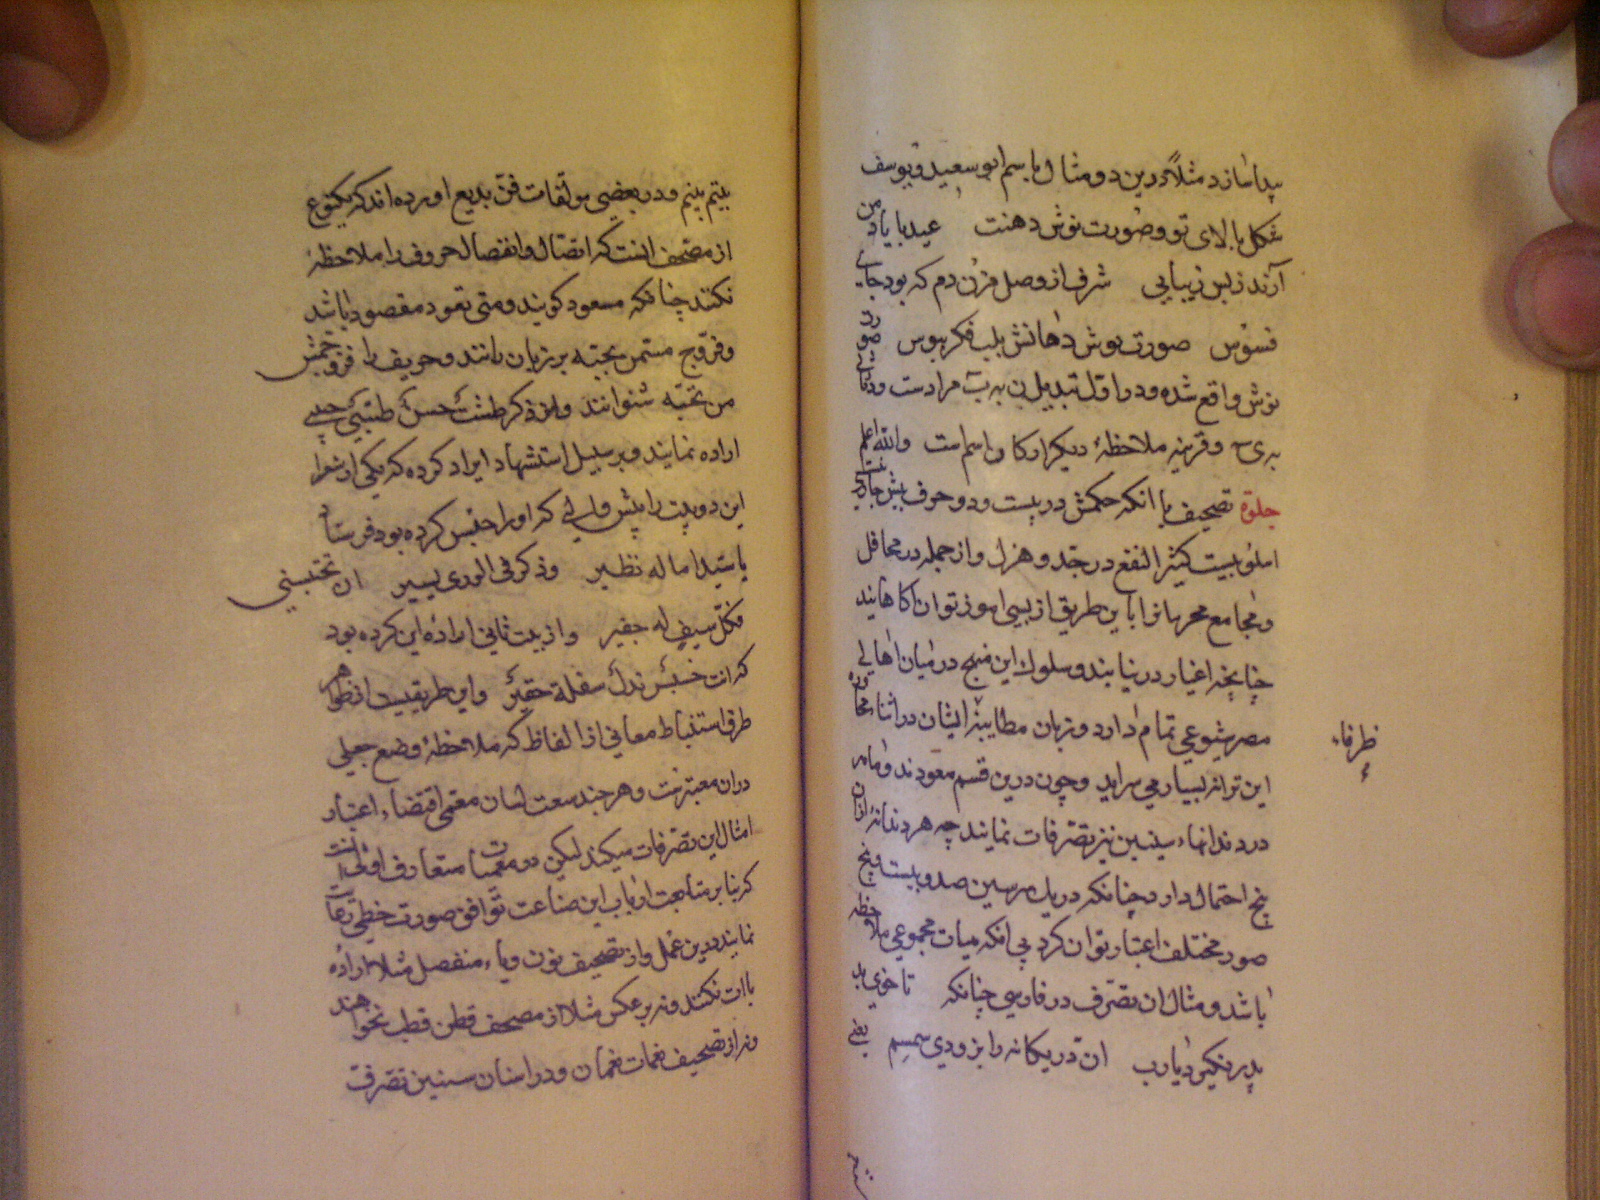 پیدا سازد مثلا درین دو مثال باسم ابو سعید و یوسف
شکل بالای تو و صورت نوش دهنت عید با یاد من
آرند ز بس زیبایی شرف از وصل مزن دم که بود جای
فسوس صورت نوش دهانش بلب فکر ببوس صورت
نوش واقع شده و در اول تبدیل ن به ب مرادست و در ثانی
به ی و قرینه ملاحظهٔ دیکر ارکان اسم است والله اعلم
جلوة تصحیف با انکه حکمش در بیست و دو حرف بیش جاری نیست
اسلوبیست کثیر النفع در جد و هزل و از جمله در محافل
و مجامع محرمانرا باین طریق از بسی امور توان اکاهانید
چنانچه اغیار در نیابند و سلوک این منهج در میان اهالی
مصر شیوعی تمام دارد و زبان مطایبهٔ ایشان در اثناء محاوره
ظرفاء
این ترانه بسیار می سراید و چون درین قسم معودند و ماهر
در دندانهاء سینین نیز تصرفات نمایند چه هر دندانهٔ ازان
پنج احتمال دارد چنانکه در یک سرسین صد و بیست و پنج
صور مختلف اعتبار توان کرد بی انکه میات مجموعی ملاحظه
باشد و مثال ان تصرف در فارسی چنانکه تا خوی بد
پدر نکیرد یارب ان در یکانه را بزودی یعنی
یتیم بینم و در بعضی مولفات فن بدیع اورده اند که یکنوع
از مصحف انست که اتصال و انفصال حروف را ملاحظهٔ
نکنند چنانکه مسعود کویند و متی تعود مقصود باشد
و فزوج مستمن بجبّه بر زبان رانند و حریف را
من شنوانند و
اراده نمایند و بر سبیل استشهاد ایراد کرده که یکی از شعرا
این دو بیت را پیش والی که او را حبس کرده بود فرستاد
یا سیدا ماله نظیر و ذکره فی الوری یسیر ان تحبسنی
فکل سیف له جفیر و از بیت ثانی اراده این کرده بود
که انت سفلة حقیر و این طریقیست از
طرق استنباط معانی از الفاظ که ملاحظهٔ وضع جعلی
دران معتبر نیست و هر چند سعت لسان معمی اقتضاء اعتبار
امثال این تصرفات میکند لیکن در معمیات متعارف اولی انست
که بنا بر متابعت ارباب این صناعت توافق صورت خطی رعایت
نمایند درین عمل و از تصحیف نون و یاء منفصل مثلا اراده
باات نکنند و نه بر عکس مثلا از مصحف قطن قطب نخواهند
و نه از تصحیف نغمات نغمان و در اسنان سینین تصرف